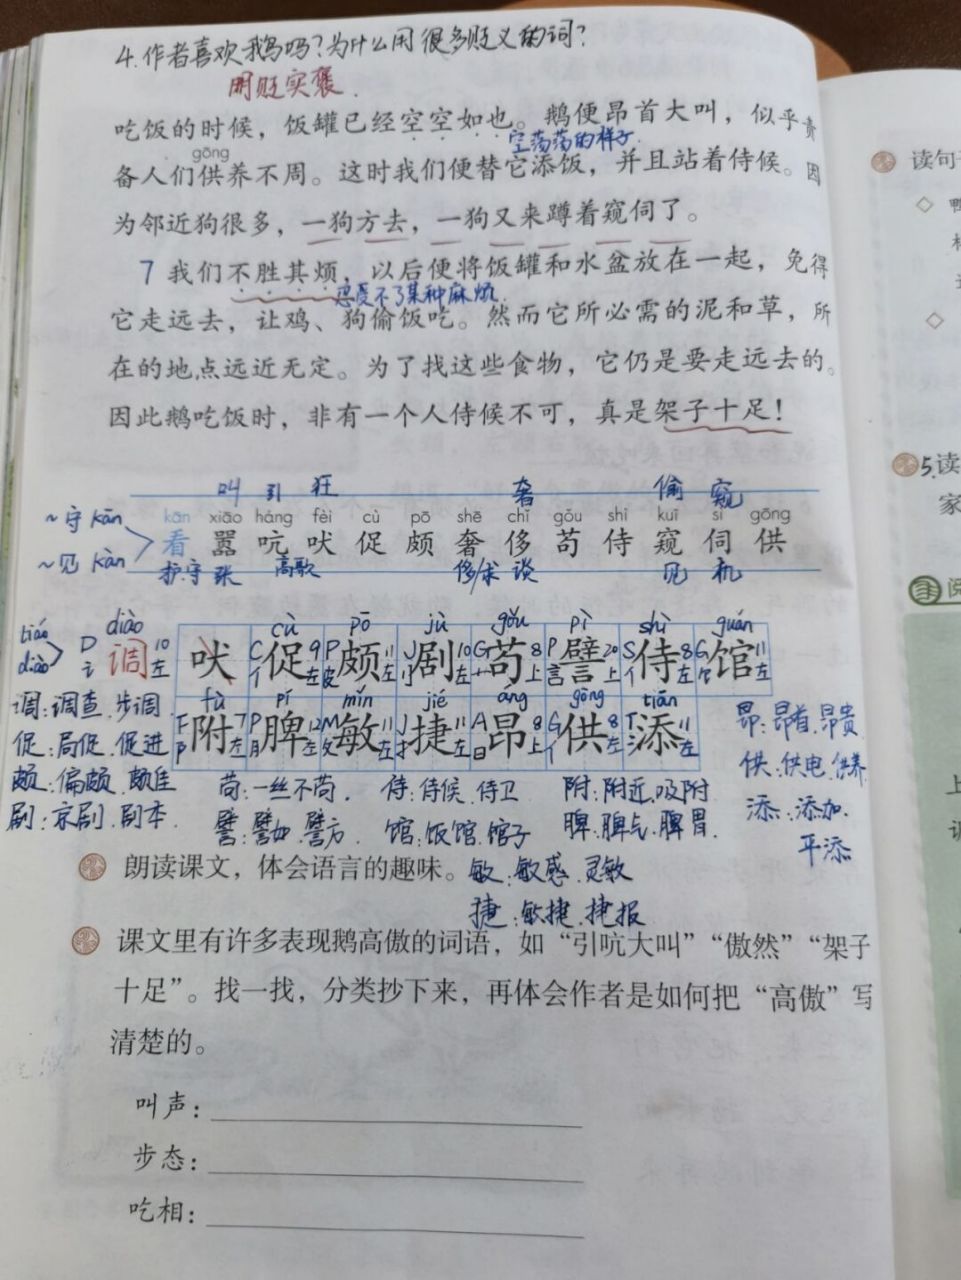 4.作者喜欢鹅吗?为什么用很多贬义的词?
用贬实褒.
吃饭的时候，饭罐已经空空如也。鹅便昂首大叫，似乎责
空荡荡的样子.
gōng
备人们供养不周。这时我们便替它添饭，并且站着侍候。因
为邻近狗很多，一狗方去，一狗又来蹲着窥伺了。
7 我们不胜其烦，以后便将饭罐和水盆放在一起，免得
忍受不了某种麻烦.
它走远去，让鸡、狗偷饭吃。然而它所必需的泥和草，所
在的地点远近无定。为了找这些食物，它仍是要走远去的。
因此鹅吃饭时，非有一个人侍候不可，真是架子十足！
叫 引 狂 奢 偷 窥
~守 kān
kān xiāo háng fèi cù pō shē chǐ gǒu shì kuī sì gōng
看 嚣 吭 吠 促 颇 奢 侈 苟 侍 窥 伺 供
~见 kàn
护.守 张 高歌 侈/求 谈 见 机
diào cù pō jù gǒu pì shì guǎn
tiáo
diào
D 讠 调 10 左 吠 C 亻 促 9 左 P 皮 颇 11 左 J 刂 剧 10 左 G 艹 苟 8 上 P 言 譬 20 上 S 亻 侍 8 左 G 饣 馆 11 左
fù pí mǐn jié áng gōng tiān
F 阝 附 7 左 P 月 脾 12 左 M 攵 敏 11 左 J 扌 捷 11 左 A 日 昂 8 上 G 亻 供 8 左 T 氵 添 11 左
调:调查.步调.
促:局促.促进
颇:偏颇.颇佳
剧:京剧.剧本.
苟:一丝不苟.
譬:譬如.譬方
侍:侍候.侍卫
馆:饭馆.馆子
附:附近.吸附
脾:脾气.脾胃.
昂:昂首.昂贵
供:供电.供养
添:添加.
平添
朗读课文，体会语言的趣味。
敏:敏感.灵敏
捷:敏捷.捷报
课文里有许多表现鹅高傲的词语，如“引吭大叫”“傲然”“架子
十足”。找一找，分类抄下来，再体会作者是如何把“高傲”写
清楚的。
叫声：
步态：
吃相：
读句子
鸭
5.读
家
阅